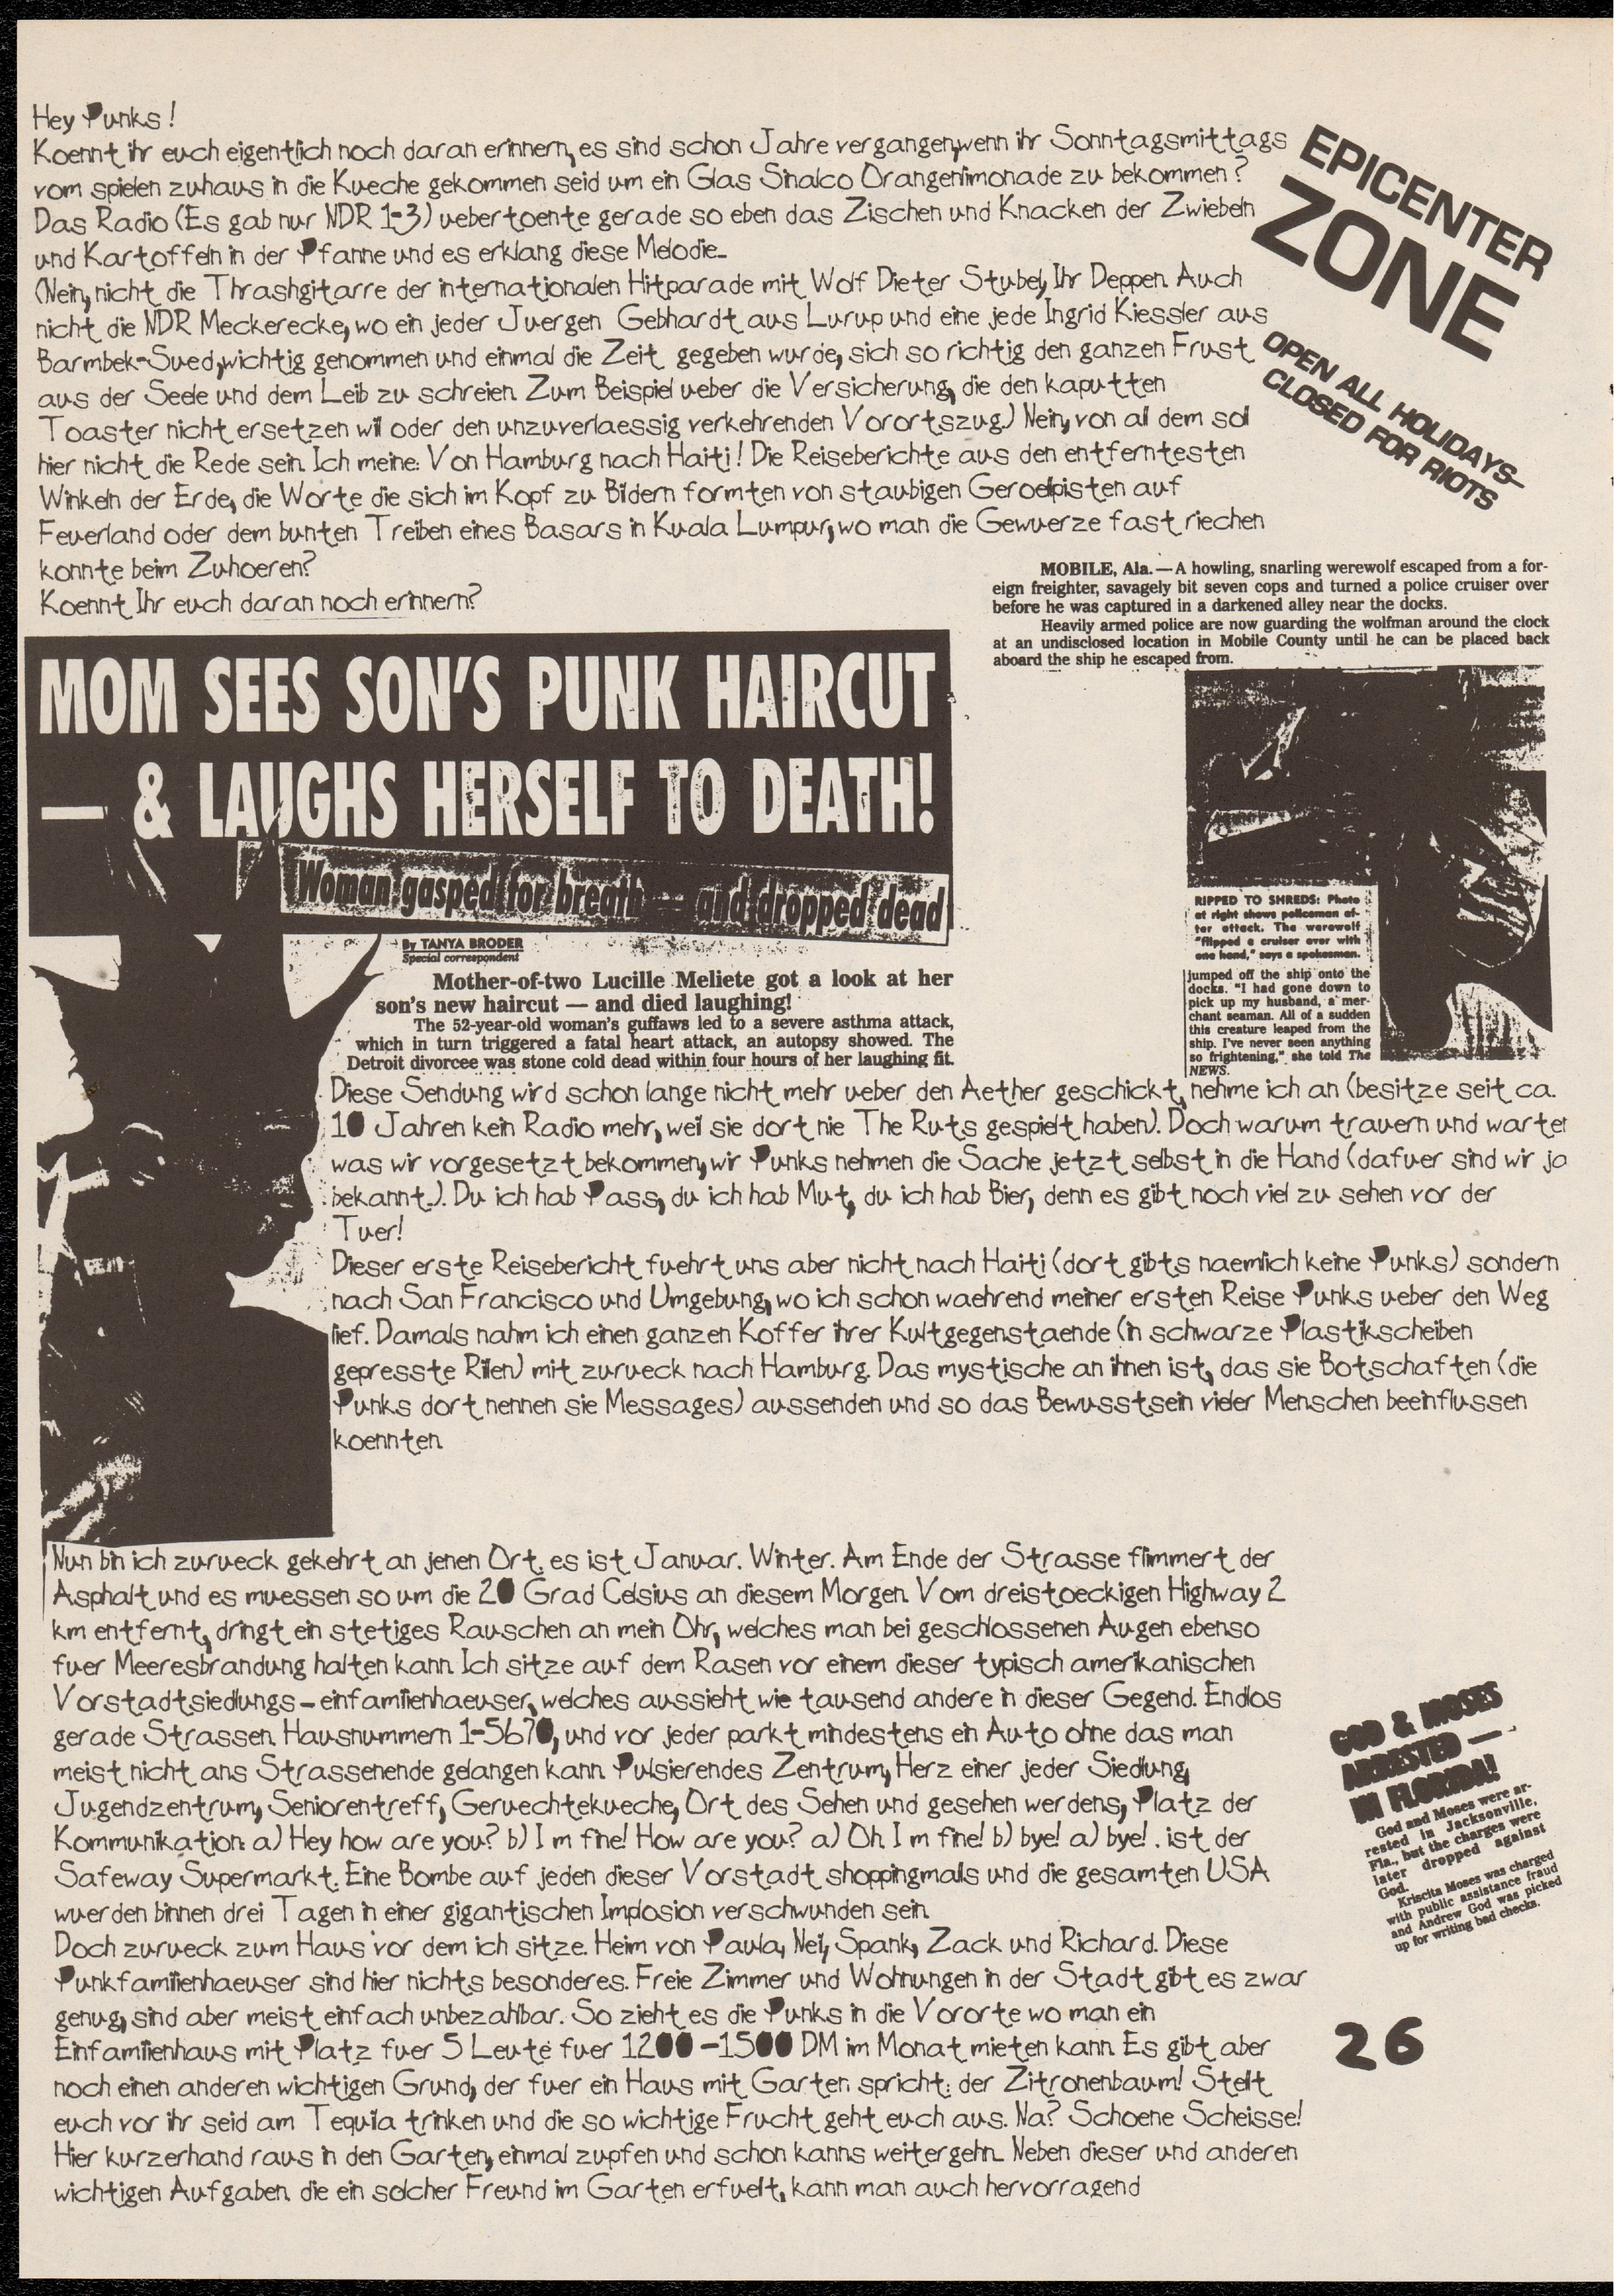 Hey Punks!
Koennt ihr euch eigentlich noch daran erinnern, es sind schon Jahre vergangen,wenn ihr Sonntagsmittags
vom spielen zuhaus in die Kueche gekommen seid um ein Glas Sinalco Orangenlimonade zu bekommen?
Das Radio (Es gab nur NDR 1-3) uebertoente gerade so eben das Zischen und Knacken der Zwiebeln
und Kartoffeln in der Pfanne und es erklang diese Melodie...
(Nein, nicht die Thrashgitarre der internationalen Hitparade mit Wolf Dieter Stubel, Ihr Deppen. Auch
nicht die NDR Meckerecke, wo ein jeder Juergen Gebhardt aus Lurup und eine jede Ingrid Kiessler aus
Barmbek-Sued,wichtig genommen und einmal die Zeit gegeben wurde, sich so richtig den ganzen Frust
aus der Seele und dem Leib zu schreien. Zum Beispiel ueber die Versicherung, die den kaputten
Toaster nicht ersetzen will oder den unzuverlaessig verkehrenden Vorortszug.) Nein, von all dem soll
hier nicht die Rede sein. Ich meine: Von Hamburg nach Haiti! Die Reiseberichte aus den entferntesten
Winkeln der Erde, die Worte die sich im Kopf zu Bildern formten von staubigen Geroellpisten auf
Feuerland oder dem bunten Treiben eines Basars in Kuala Lumpur, wo man die Gewuerze fast riechen
konnte beim Zuhoeren?
Koennt Ihr euch daran noch erinnern?
EPICENTER
ZONE
OPEN ALL HOLIDAYS—
CLOSED FOR RIOTS
MOBILE, Ala. — A howling, snarling werewolf escaped from a for-
eign freighter, savagely bit seven cops and turned a police cruiser over
before he was captured in a darkened alley near the docks.
Heavily armed police are now guarding the wolfman around the clock
at an undisclosed location in Mobile County until he can be placed back
aboard the ship he escaped from.
MOM SEES SON'S PUNK HAIRCUT
— & LAUGHS HERSELF TO DEATH!
Woman gasped for breath — and dropped dead
By TANYA BRODER
Special correspondent
Mother-of-two Lucille Meliete got a look at her
son's new haircut — and died laughing!
The 52-year-old woman's guffaws led to a severe asthma attack,
which in turn triggered a fatal heart attack, an autopsy showed. The
Detroit divorcee was stone cold dead within four hours of her laughing fit.
RIPPED TO SHREDS: Photo
at right shows policeman af-
ter attack. The werewolf
"flipped a cruiser over with
one hand," says a spokesman.
jumped off the ship onto the
docks. "I had gone down to
pick up my husband, a mer-
chant seaman. All of a sudden
this creature leaped from the
ship. I've never seen anything
so frightening," she told The
NEWS.
Diese Sendung wird schon lange nicht mehr ueber den Aether geschickt, nehme ich an (besitze seit ca.
10 Jahren kein Radio mehr, weil sie dort nie The Ruts gespielt haben). Doch warum trauern und warten
was wir vorgesetzt bekommen, wir Punks nehmen die Sache jetzt selbst in die Hand (dafuer sind wir ja
bekannt..). Du ich hab Pass, du ich hab Mut, du ich hab Bier, denn es gibt noch viel zu sehen vor der
Tuer!
Dieser erste Reisebericht fuehrt uns aber nicht nach Haiti (dort gibts naemlich keine Punks) sondern
nach San Francisco und Umgebung, wo ich schon waehrend meiner ersten Reise Punks ueber den Weg
lief. Damals nahm ich einen ganzen Koffer ihrer Kultgegenstaende (in schwarze Plastikscheiben
gepresste Rillen) mit zurueck nach Hamburg. Das mystische an ihnen ist, das sie Botschaften (die
Punks dort nennen sie Messages) aussenden und so das Bewusstsein vieler Menschen beeinflussen
koennten.
Nun bin ich zurueck gekehrt an jenen Ort. es ist Januar. Winter. Am Ende der Strasse flimmert der
Asphalt und es muessen so um die 20 Grad Celsius an diesem Morgen. Vom dreistoeckigen Highway 2
km entfernt, dringt ein stetiges Rauschen an mein Ohr, welches man bei geschlossenen Augen ebenso
fuer Meeresbrandung halten kann. Ich sitze auf dem Rasen vor einem dieser typisch amerikanischen
Vorstadtsiedlungs-einfamilienhaeuser, welches aussieht wie tausend andere in dieser Gegend. Endlos
gerade Strassen. Hausnummern 1-5670, und vor jeder parkt mindestens ein Auto ohne das man
meist nicht ans Strassenende gelangen kann. Pulsierendes Zentrum, Herz einer jeder Siedlung,
Jugendzentrum, Seniorentreff, Geruechtekueche, Ort des Sehen und gesehen werdens, Platz der
Kommunikation: a) Hey how are you? b) I m fine! How are you? a) Oh. I m fine! b) bye! a) bye! . ist der
Safeway Supermarkt. Eine Bombe auf jeden dieser Vorstadt shoppingmalls und die gesamten USA
wuerden binnen drei Tagen in einer gigantischen Implosion verschwunden sein.
Doch zurueck zum Haus vor dem ich sitze. Heim von Paula, Neil, Spank, Zack und Richard. Diese
Punkfamilienhaeuser sind hier nichts besonderes. Freie Zimmer und Wohnungen in der Stadt gibt es zwar
genug, sind aber meist einfach unbezahlbar. So zieht es die Punks in die Vororte wo man ein
Einfamilienhaus mit Platz fuer 5 Leute fuer 1200-1500 DM im Monat mieten kann. Es gibt aber
noch einen anderen wichtigen Grund, der fuer ein Haus mit Garten spricht: der Zitronenbaum! Stellt
euch vor ihr seid am Tequila trinken und die so wichtige Frucht geht euch aus. Na? Schoene Scheisse!
Hier kurzerhand raus in den Garten, einmal zupfen und schon kanns weitergehn... Neben dieser und anderen
wichtigen Aufgaben. die ein solcher Freund im Garten erfuellt, kann man auch hervorragend
GOD & MOSES
ARRESTED —
IN FLORIDA!
God and Moses were ar-
rested in Jacksonville,
Fla., but the charges were
later dropped against
God.
Kriscita Moses was charged
with public assistance fraud
and Andrew God was picked
up for writing bad checks.
26